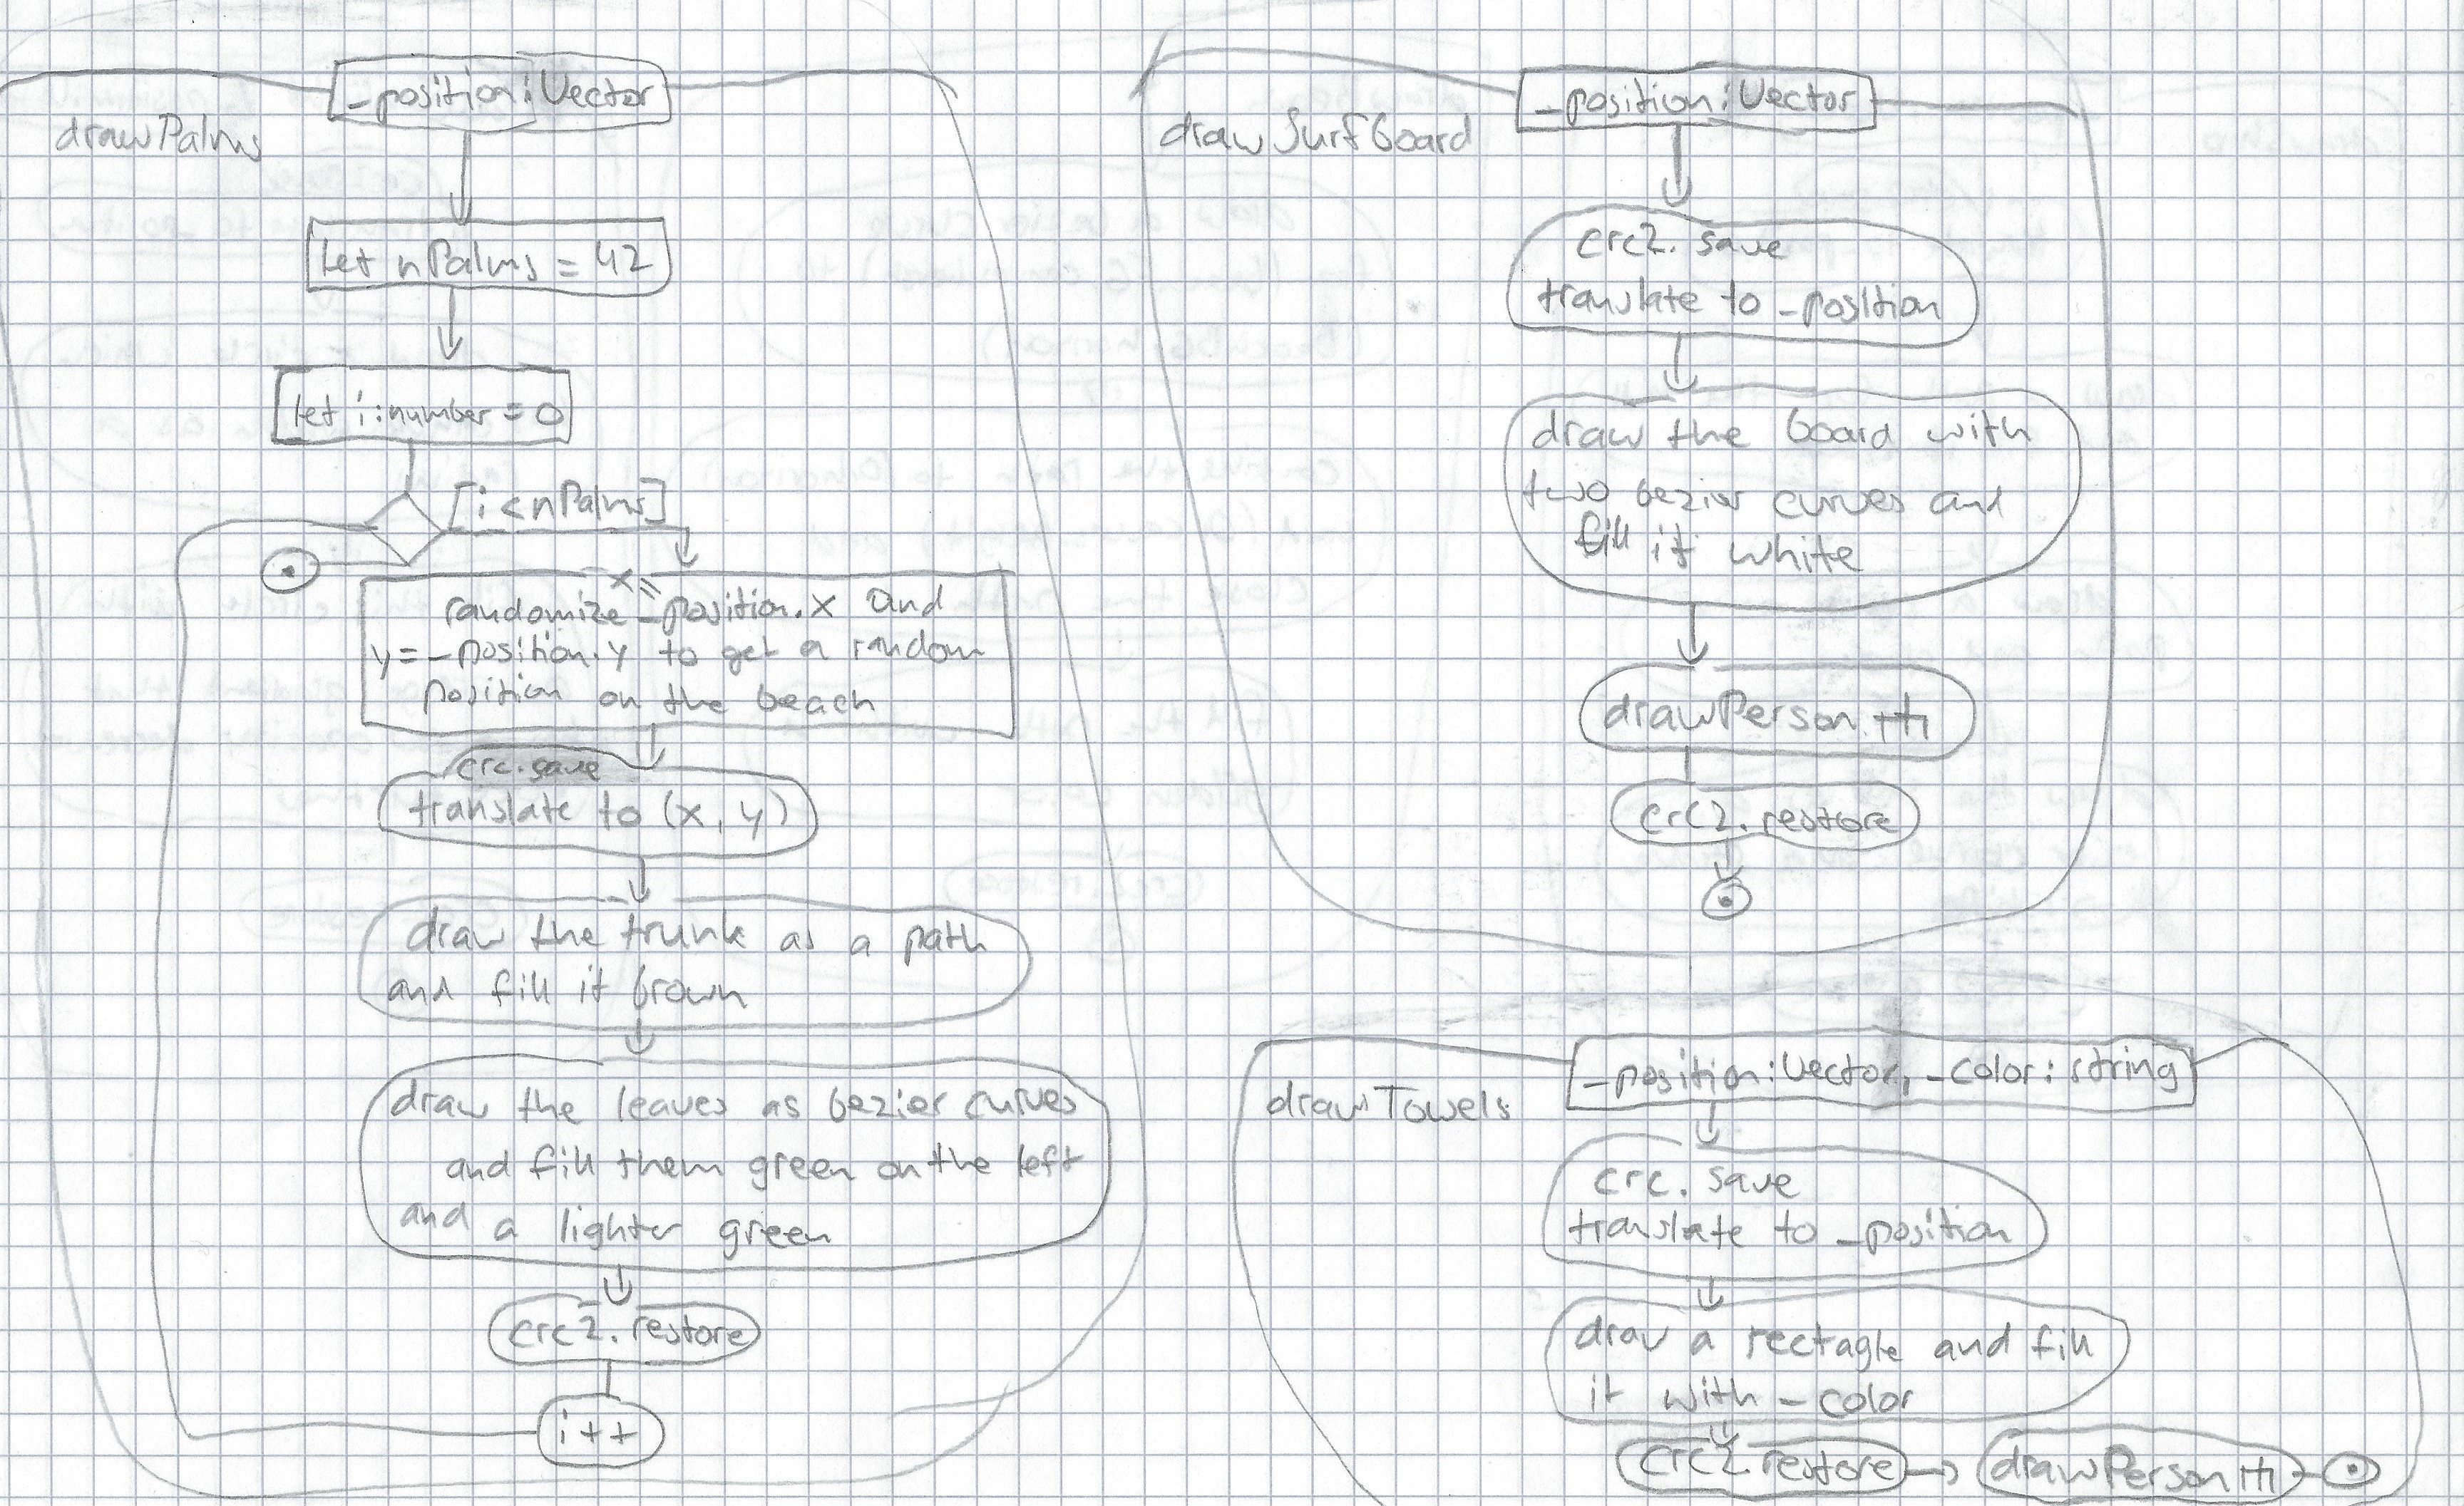 _position:Vector
drawPalms
let nPalms = 42
let i:number = 0
[i < nPalms]
x =
randomize _position.x and
y = _position.y to get a random
position on the beach
crc.save
translate to (x, y)
draw the trunk as a path
and fill it brown
draw the leaves as bezier curves
and fill them green on the left
and a lighter green
crc2.restore
i++
_position:Vector
drawSurfboard
crc2.save
translate to _position
draw the board with
two bezier curves and
fill it white
drawPerson
crc2.restore
_position:Vector, _color:string
drawTowels
crc.save
translate to _position
draw a rectagle and fill
it with _color
crc2.restore
drawPerson